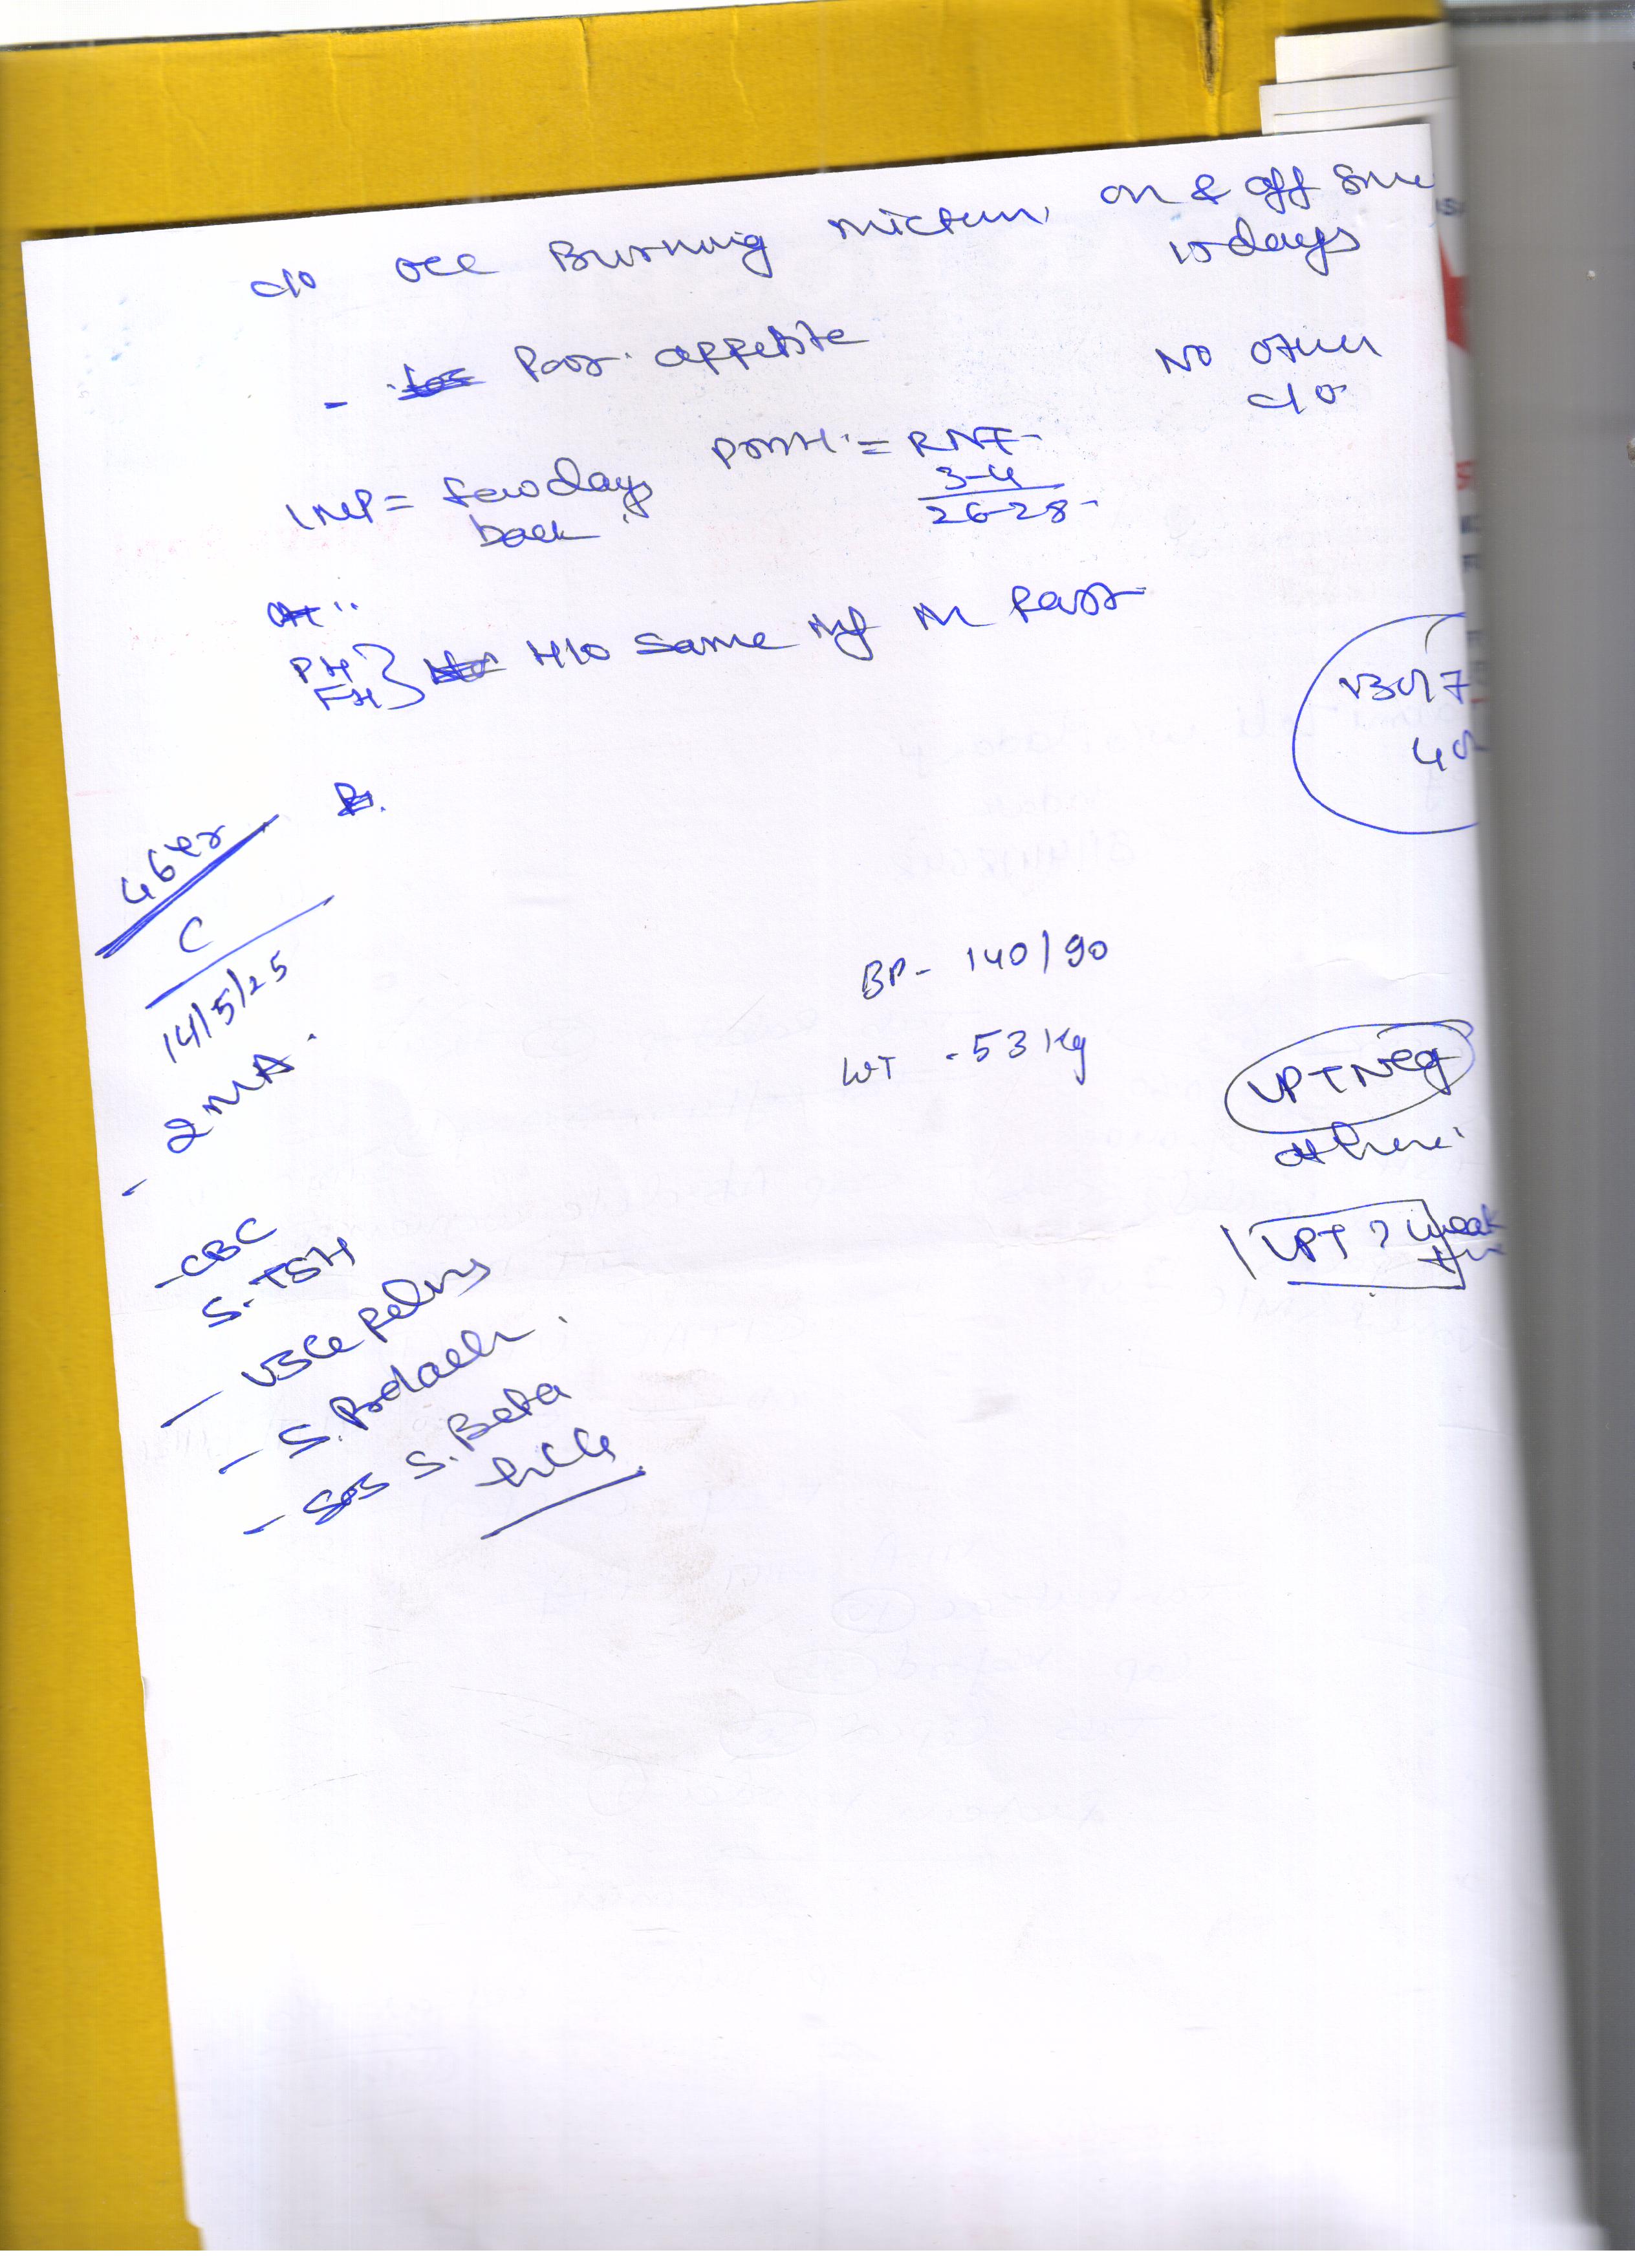 c/o occ Burning mictun, on & off since
10 days
- Poor appetite
No other
c/o
PMH = RNF
3-4
26-28
LMP = few days
back
PH
FH } H/o same in Past
46 yr
C
14/5/25
BP - 140/90
WT - 53 Kg
2 MA.
UPT Neg
at home
UPT ? weak
- CBC
S. TSH
- USG Pelvis
- S. Prolactin.
- SOS S. Beta
HCG